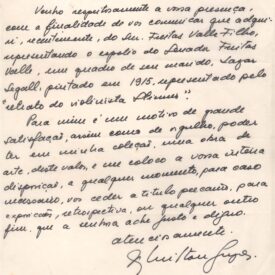 Venho respeitosamente a vossa presença,
com a finalidade de vos comunicar que adqui-
ri, recentemente, do Snr. Freitas Valle Filho,
representando o espolio do Senador Freitas
Valle, um quadro de seu marido, Lasar
Segall, pintado em 1915, representado pelo
"retrato do violinista
Para mim é um motivo de grande
satisfação, assim como de orgulho, poder
ter em minha coleção, uma obra de
arte, deste valor, e me coloco a vossa inteira
disposição, a qualquer momento, para caso
necessario, vos ceder a titulo precario, para
exposição, retrospectiva, ou qualquer outro
fim, que a senhora ache justo e digno.
atenciosamente.